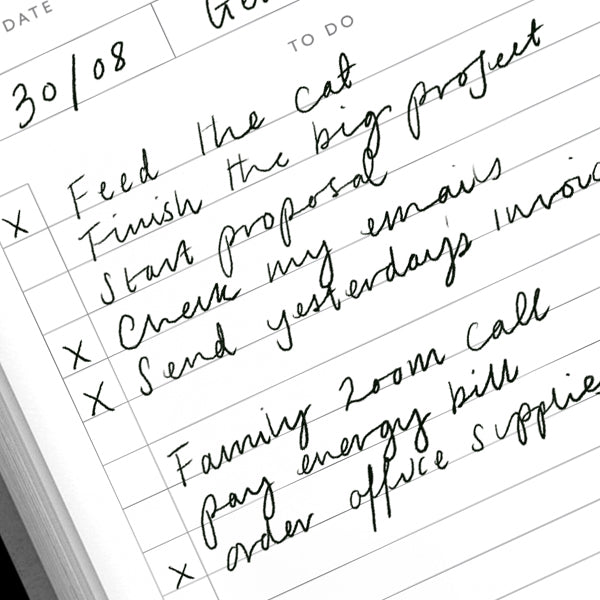 DATE
30/08
TO DO
x Feed the cat
Finish the big project
Start proposal
x Check my emails
x Send yesterday's
Family zoom call
pay energy bill
x order office